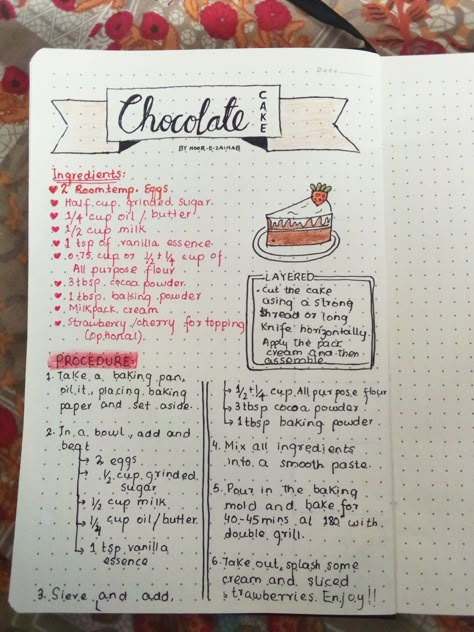 Date
Chocolate CAKE
BY NOOR-E-ZAINAB
Ingredients:
2 Room temp. Eggs.
Half cup grinded sugar.
1/4 cup oil / butter
1/2 cup milk
1 tsp of vanilla essence
0.75 cup or 1/2 + 1/4 cup of
All purpose flour
3 tbsp cocoa powder.
1 tbsp. baking powder
Milkpack cream
Strawberry/cherry for topping
(optional).
LAYERED
Cut the cake
using a strong
thread or long
Knife horizontally.
Apply the pack
cream and then
assemble.
PROCEDURE:
1. Take a baking pan,
oil it, placing baking
paper and set aside.
2. In a bowl, add and
beat
2 eggs
1/2 cup grinded
sugar
1/2 cup milk
1/4 cup oil/butter.
1 tsp vanilla
essence
3. Sieve and add,
1/2 + 1/4 cup All purpose flour
3 tbsp cocoa powder
1 tbsp baking powder
4. Mix all ingredients
into a smooth paste.
5. Pour in the baking
mold and bake for
40-45 mins at 180° with
double grill.
6. Take out, splash some
cream and sliced
strawberries. Enjoy!!